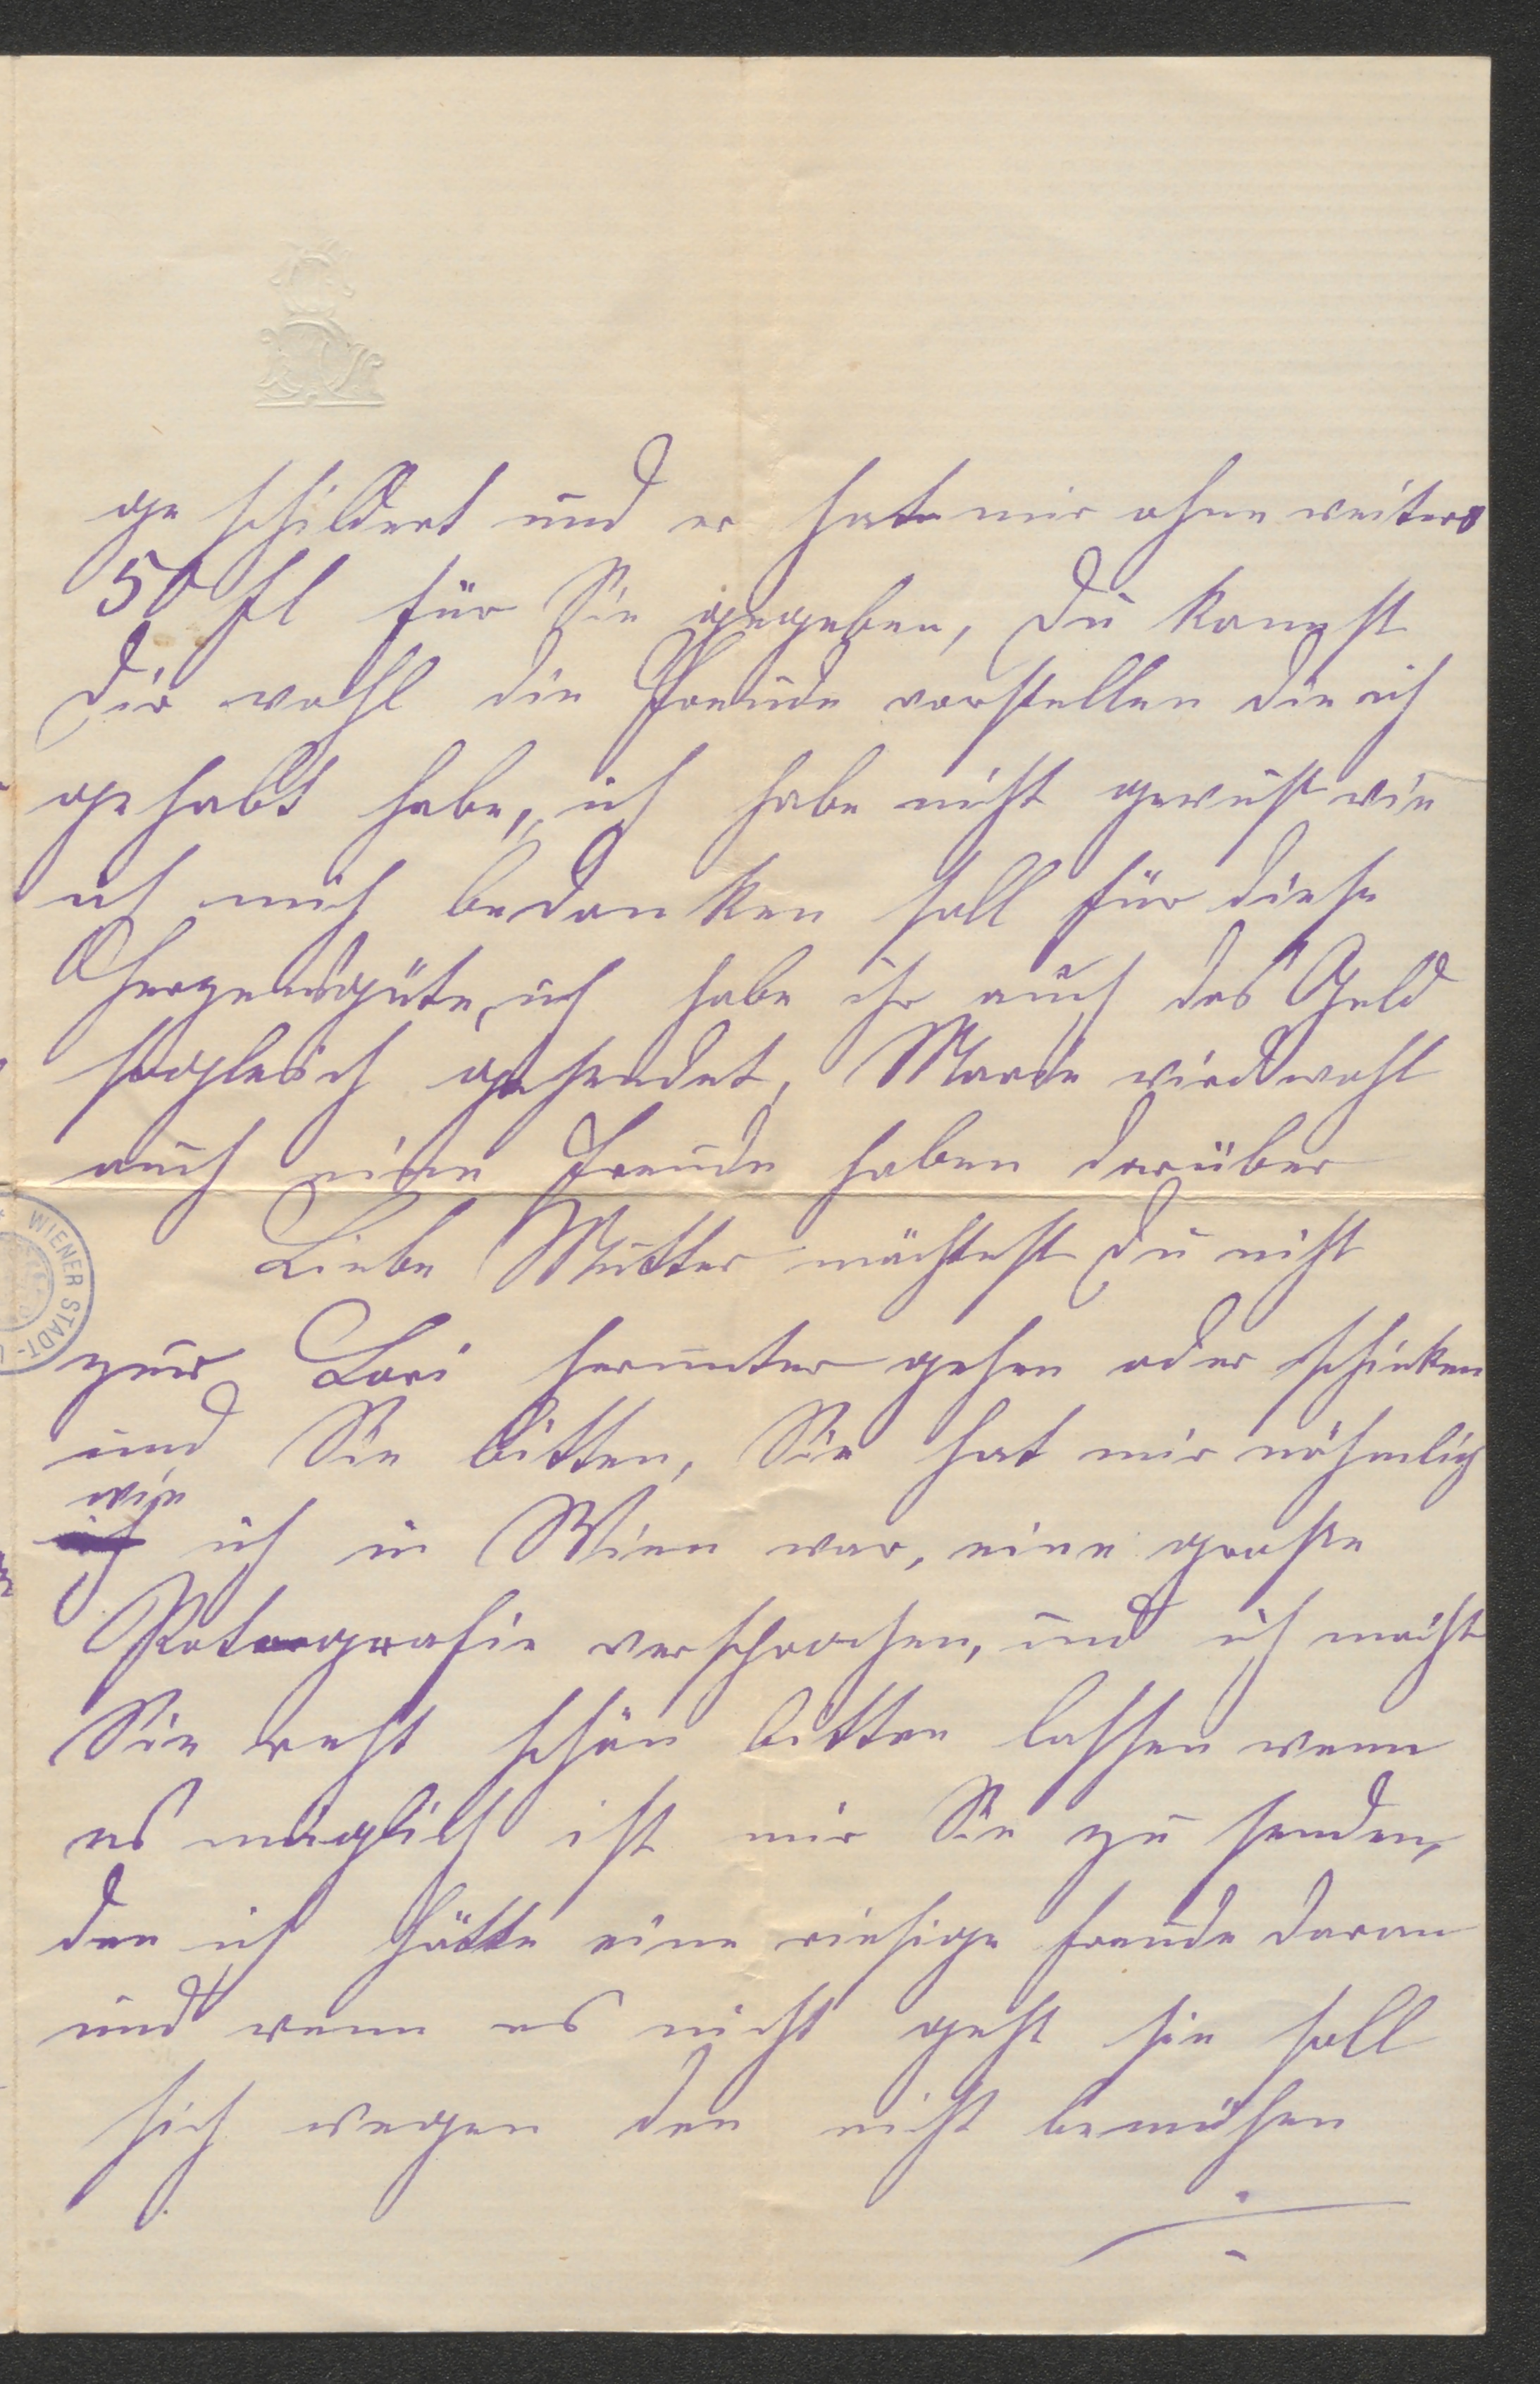 ge schildert und er hate mir ohne weiters
50 fl für Sie gegeben, Du kannst
Dir wohl die Freude vorstellen die ich
gehabt habe, ich habe nicht gewust wie
ich mich bedanken soll für diese
Herzensgüte, ich habe ihr auch das Geld
sogleich gesendet, Marie wird wohl
auch eine Freude haben darüber
Liebe Mutter möchtest Du nicht
zur Lori herunter gehen oder schicken
und Sie bitten, Sie hat mir nöhmlich
wie
ich in Wien war, eine große
Fotografie versprochen, und ich möcht
Sie recht schön bitten lassen wenn
es möglich ist mir Sie zu senden,
den ich hätte eine riesige Freude daran
und wenn es nicht geht sie soll
sich wegen den nicht bemühen
WIENER STADT-